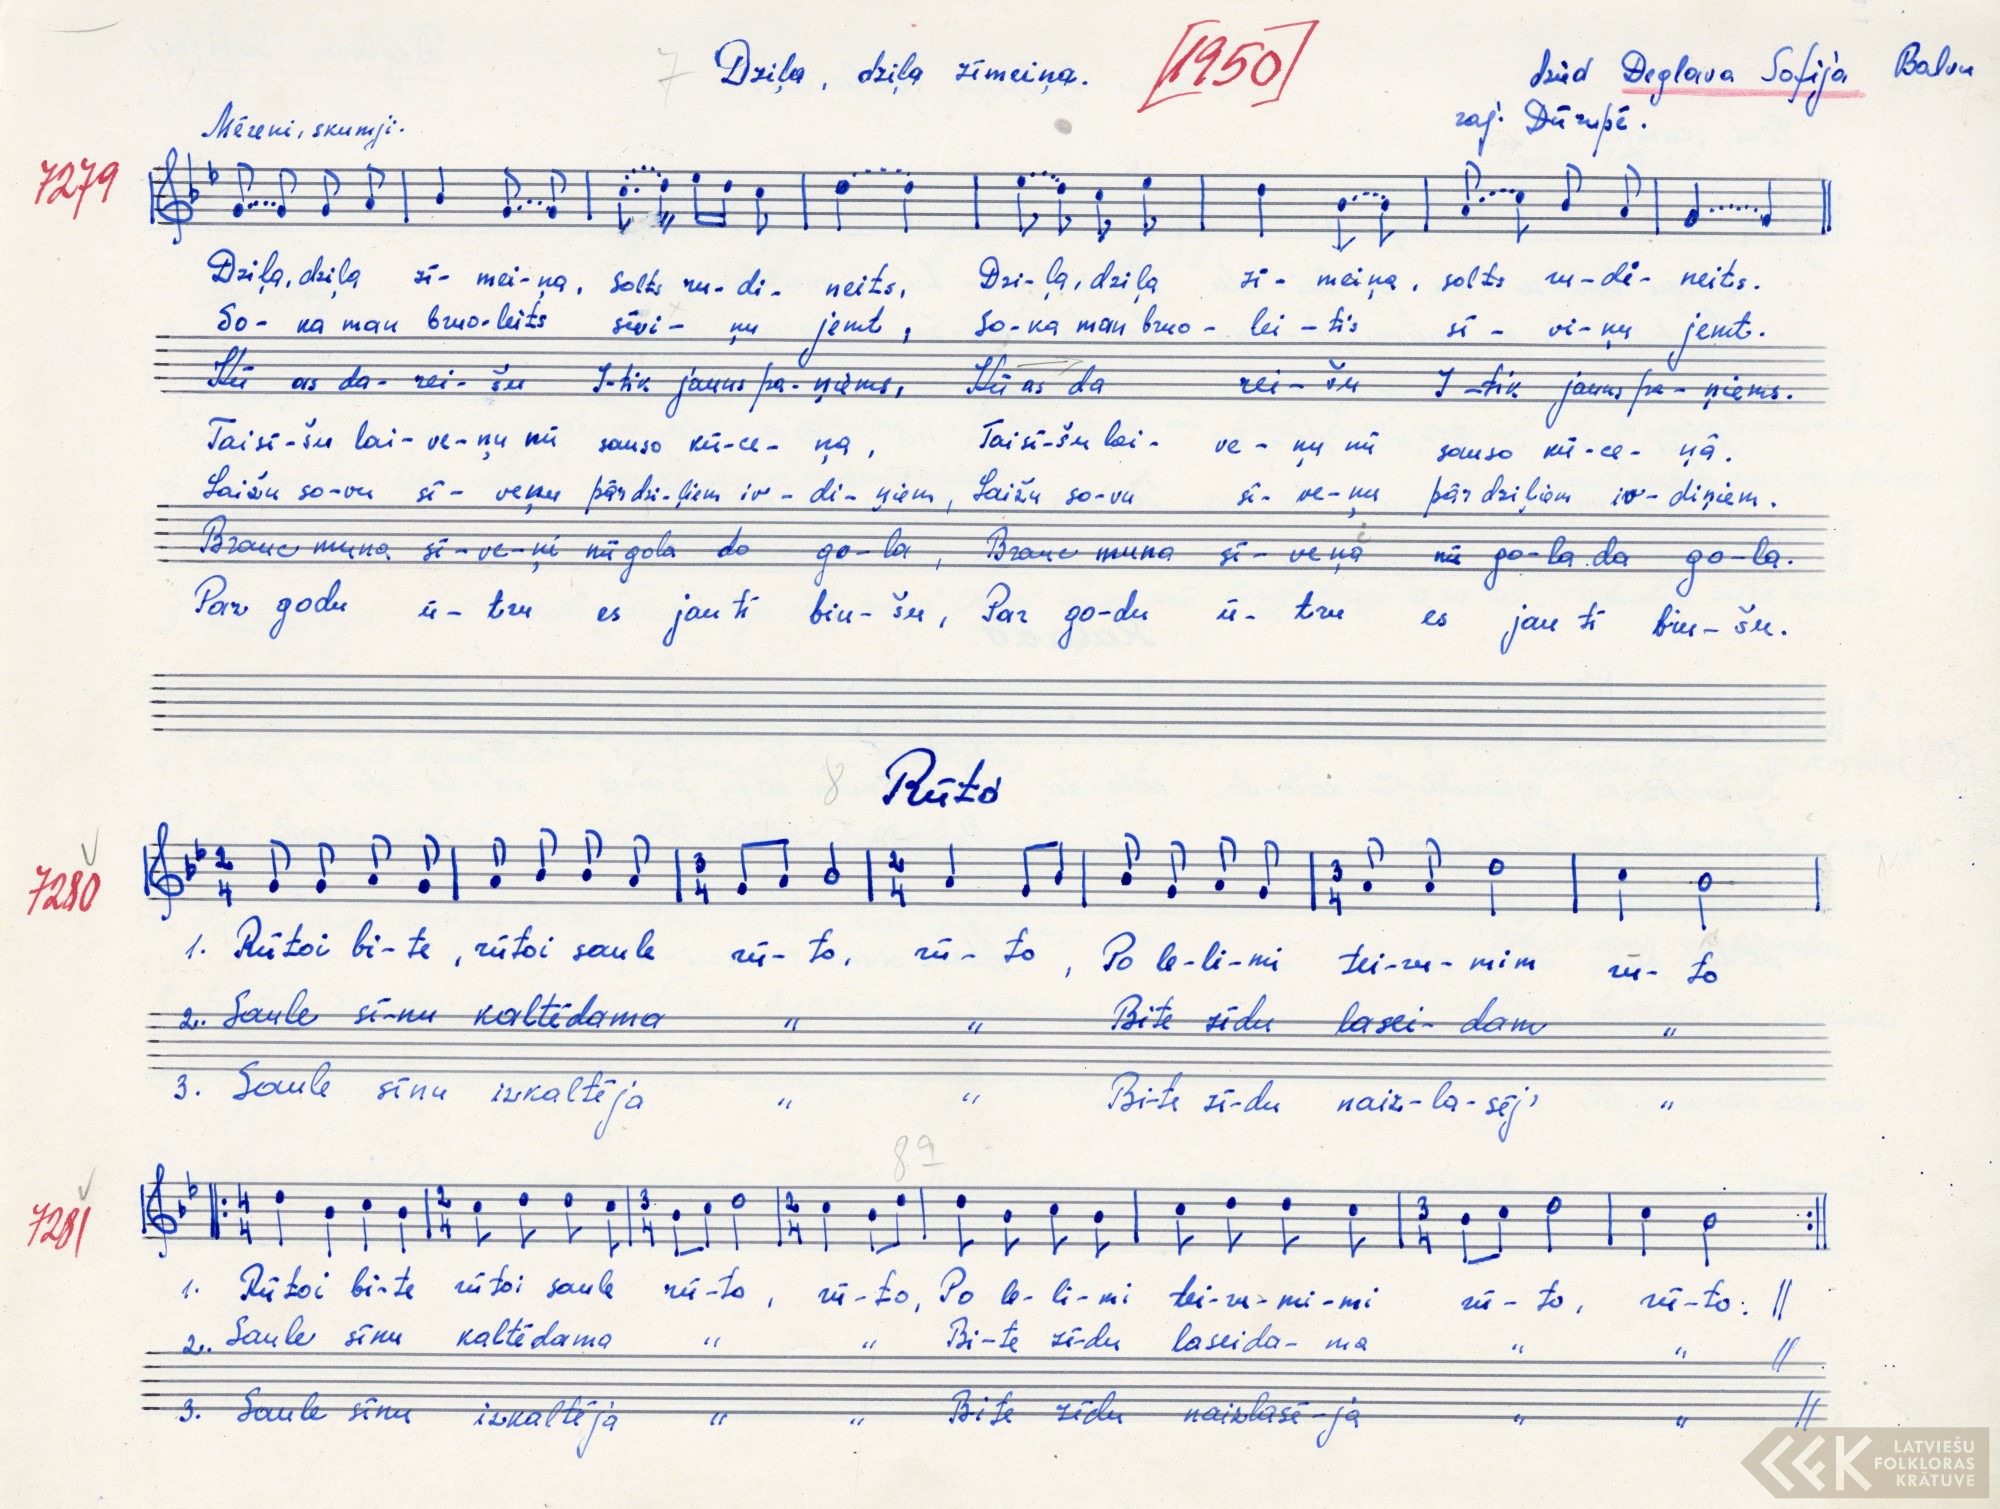 7 Dziļa, dziļa zīmeiņa. [1950] dzied Deglava Sofija Balvu
raj. Dūrupē.
Mēreni, skumji.
7279
Dziļa, dziļa zī- mei-ņa, solts ru-di- neits, Dzi-ļa, dziļa zī- meiņa, solts ru-di- neits.
So- ka man bruo-leits sīvi- ņu jemt, So-ka man bruo- lei-tis sī- vi-ņu jemt.
Kū as da- rei- šu I-tik jauns pa- ņiems, Kū as da rei- šu I-tik jauns pa- ņiems.
Taisī-šu lai- ve- ņu nū sauso kū-ce- ņa, Taisī-šu lai- ve- ņu nū sauso kū-ce- ņā.
Laižu so-vu sī- veņu pār dzi-ļiem iv-di- ņiem, Laižu so-vu sī- ve-ņu pār dziļiem iv-diņiem.
Brauc muna sī-ve-ņi nū gola do go-la, Brauc muna sī- veņa nū go-la da go-la.
Par godu ū- tru es jau tī biu-šu, Par go-du ū- tru es jau tī biu-šu.
8 Rūtó
7280 2/4 3/4 2/4 3/4
1. Rūtoi bi-te, rūtoi saule rū-to, rū-to, Po le-li-mi tei-ru-mim rū-to
2. Saule sī-nu kaltēdama " " Bite zīdu lasei-dam "
3. Saule sīnu izkaltēja " " Bi-te zī-du naiz-la-sēj' "
8a
7281 4/4 2/4 3/4 2/4 3/4
1. Rūtoi bi-te rūtoi saule rū-to, rū-to, Po le-li-mi tei-ru-mi-mi rū-to, rū-to: //
2. Saule sīnu kaltēdama " " Bi-te zī-du laseida-ma " " //
3. Saule sīnu izkaltēja " " Bite zīdu naizlasē-ja " " //
LATVIEŠU
FOLKLORAS
KRĀTUVE